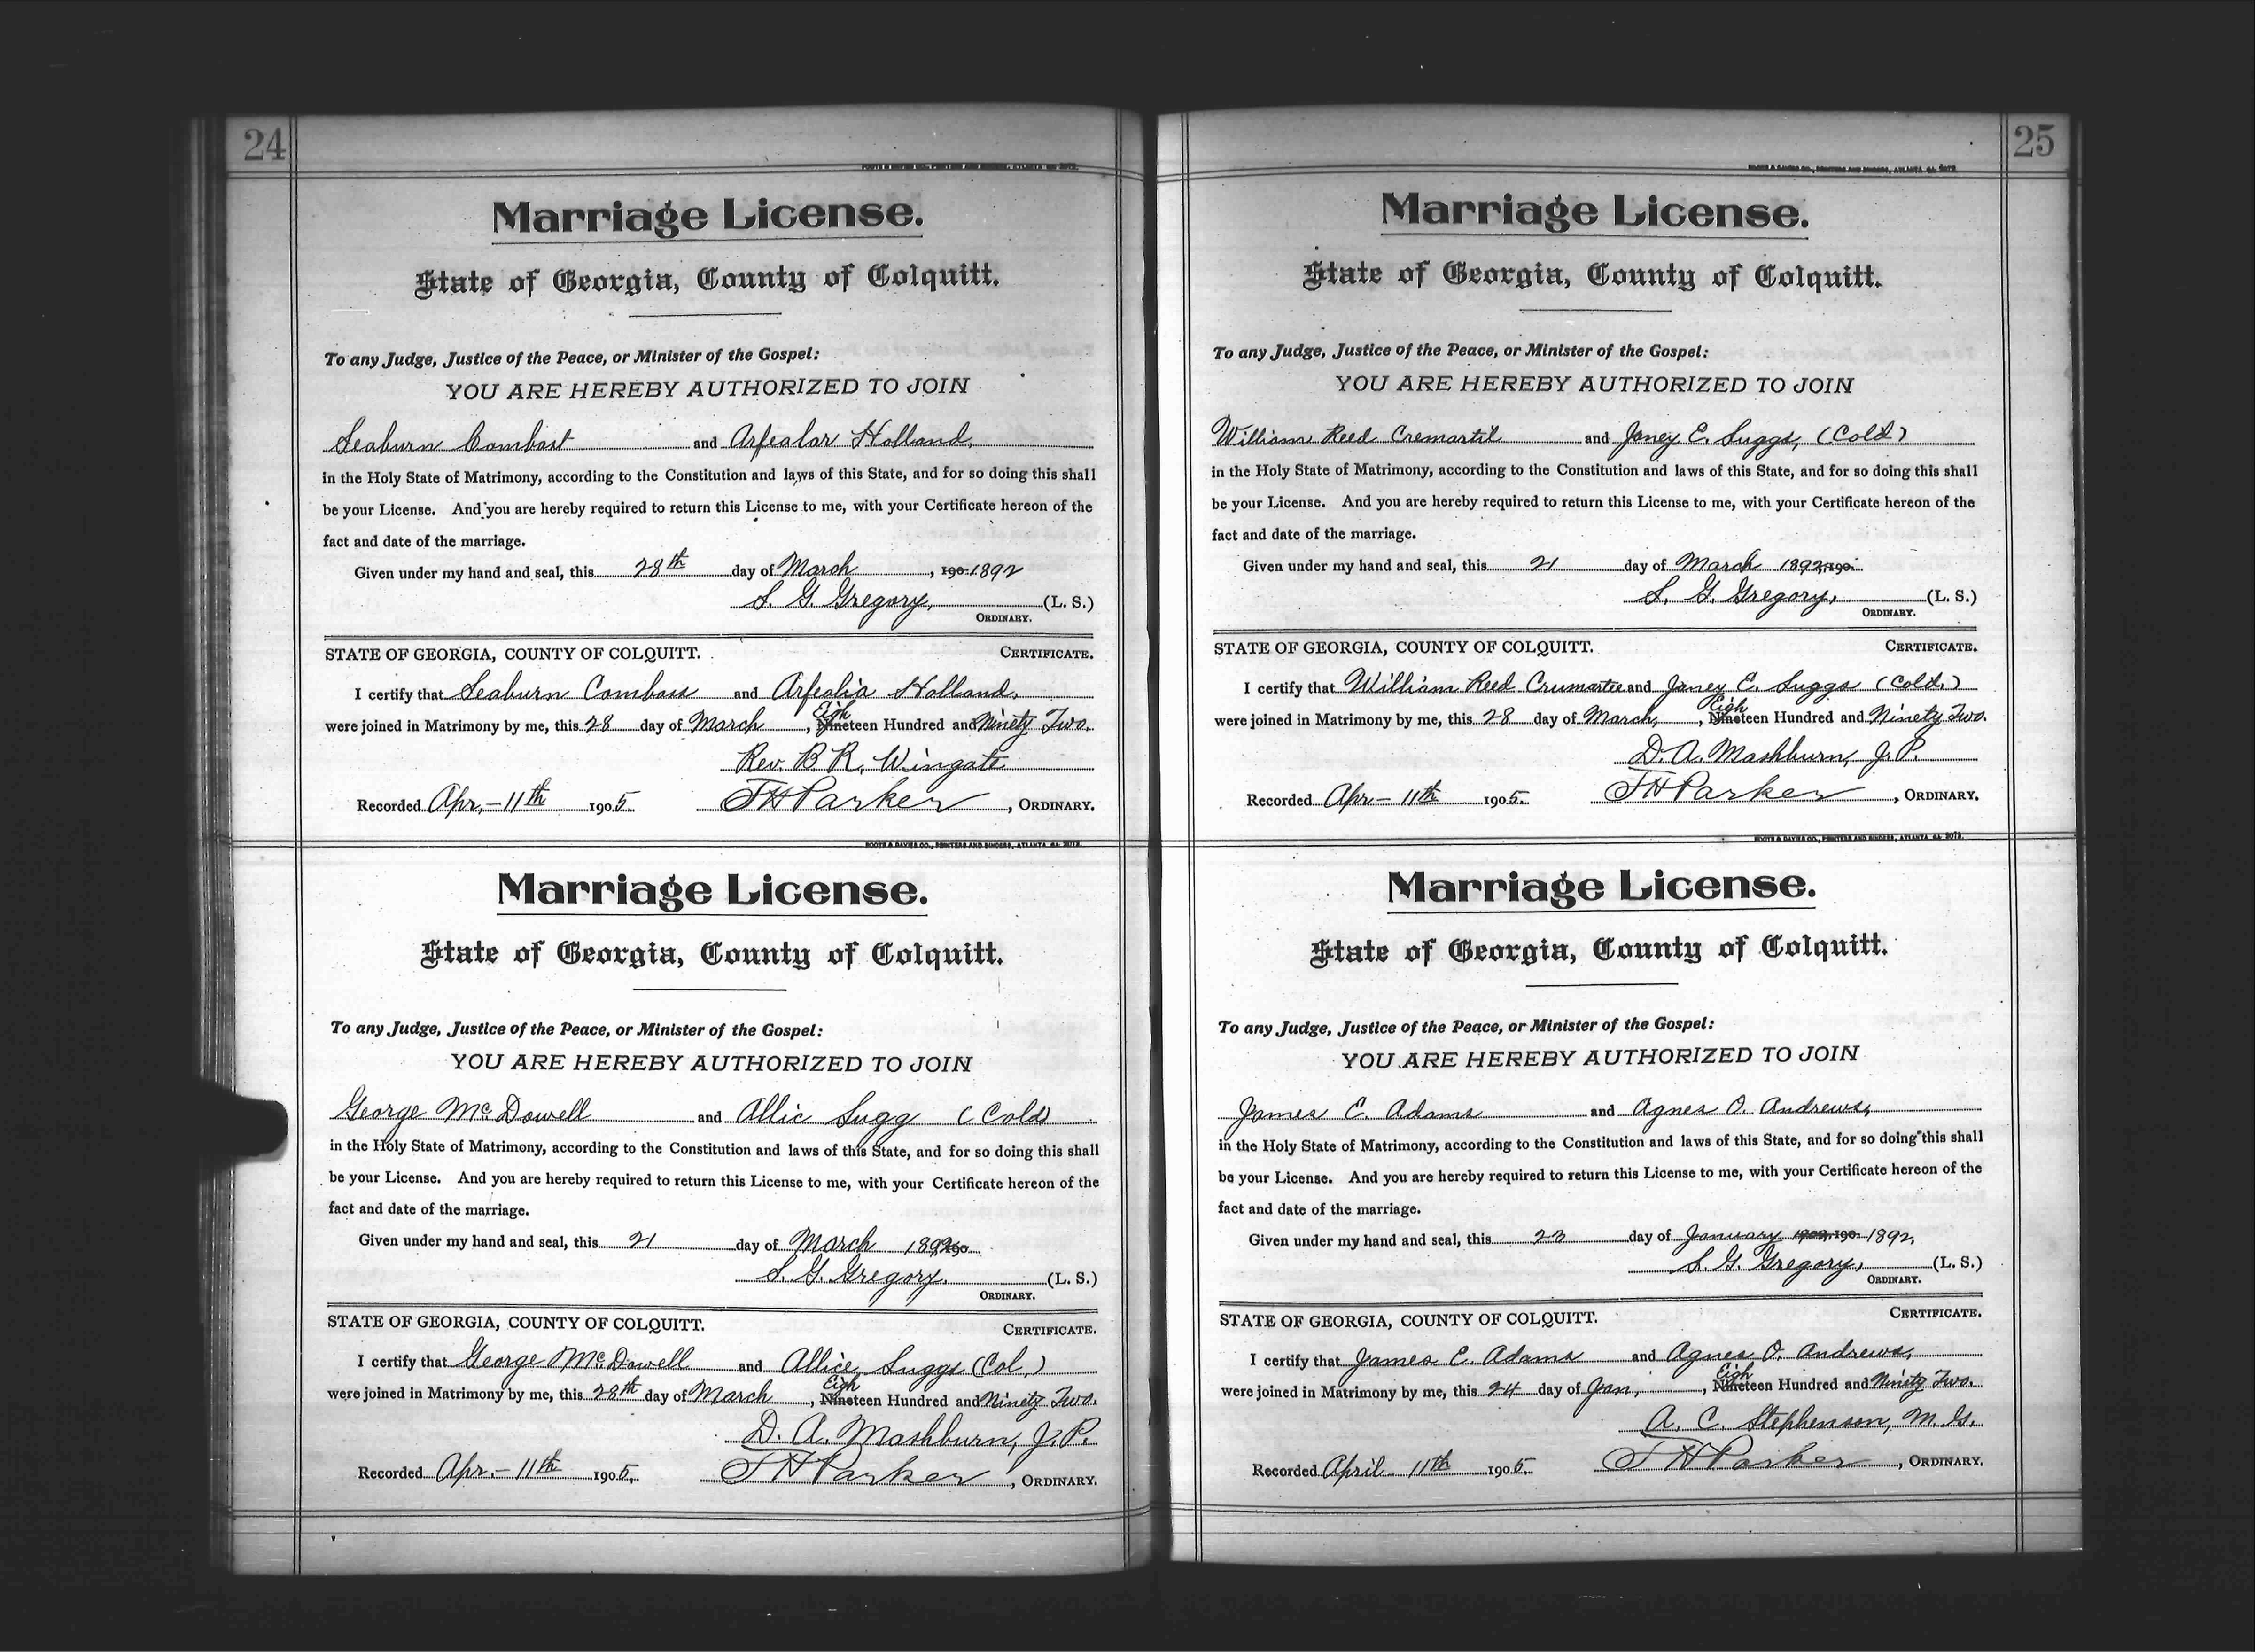 24
Marriage License.
State of Georgia, County of Colquitt.
To any Judge, Justice of the Peace, or Minister of the Gospel:
YOU ARE HEREBY AUTHORIZED TO JOIN
Seaburn Combast and Arfealar Holland,
in the Holy State of Matrimony, according to the Constitution and laws of this State, and for so doing this shall
be your License. And you are hereby required to return this License to me, with your Certificate hereon of the
fact and date of the marriage.
Given under my hand and seal, this 28th day of March , 190 1892
S. G. Gregory, (L. S.)
ORDINARY.
STATE OF GEORGIA, COUNTY OF COLQUITT. CERTIFICATE.
I certify that Seaburn Combass and Arfealia Holland,
were joined in Matrimony by me, this 28 day of March , Eighteen Hundred and Ninety Two.
Rev. B. R. Wingate
Recorded Apr. - 11th 1905 J H Parker , ORDINARY.
FOOTE & DAVIES CO., PRINTERS AND BINDERS, ATLANTA, GA.
Marriage License.
State of Georgia, County of Colquitt.
To any Judge, Justice of the Peace, or Minister of the Gospel:
YOU ARE HEREBY AUTHORIZED TO JOIN
George McDowell and Allic Sugg (Cold)
in the Holy State of Matrimony, according to the Constitution and laws of this State, and for so doing this shall
be your License. And you are hereby required to return this License to me, with your Certificate hereon of the
fact and date of the marriage.
Given under my hand and seal, this 21 day of March 1892 190
S. G. Gregory. (L. S.)
ORDINARY.
STATE OF GEORGIA, COUNTY OF COLQUITT. CERTIFICATE.
I certify that George McDowell and Allice Suggs (Col.)
were joined in Matrimony by me, this 28th day of March , Eighteen Hundred and Ninety Two.
D. A. Mashburn, J. P.
Recorded Apr. - 11th 1905. J H Parker , ORDINARY.
25
FOOTE & DAVIES CO., PRINTERS AND BINDERS, ATLANTA, GA.
Marriage License.
State of Georgia, County of Colquitt.
To any Judge, Justice of the Peace, or Minister of the Gospel:
YOU ARE HEREBY AUTHORIZED TO JOIN
William Reed Cremartil and Janey E. Suggs, (Cold)
in the Holy State of Matrimony, according to the Constitution and laws of this State, and for so doing this shall
be your License. And you are hereby required to return this License to me, with your Certificate hereon of the
fact and date of the marriage.
Given under my hand and seal, this 21 day of March 1892, 190
S. G. Gregory, (L. S.)
ORDINARY.
STATE OF GEORGIA, COUNTY OF COLQUITT. CERTIFICATE.
I certify that William Reed Crumartee and Janey E. Suggs (Cold.)
were joined in Matrimony by me, this 28 day of March, , Eighteen Hundred and Ninety Two.
D. A. Mashburn, J. P.
Recorded Apr - 11th 1905. J H Parker , ORDINARY.
FOOTE & DAVIES CO., PRINTERS AND BINDERS, ATLANTA, GA.
Marriage License.
State of Georgia, County of Colquitt.
To any Judge, Justice of the Peace, or Minister of the Gospel:
YOU ARE HEREBY AUTHORIZED TO JOIN
James E. Adams and Agnes O. Andrews,
in the Holy State of Matrimony, according to the Constitution and laws of this State, and for so doing this shall
be your License. And you are hereby required to return this License to me, with your Certificate hereon of the
fact and date of the marriage.
Given under my hand and seal, this 23 day of January 1902, 190 1892,
S. G. Gregory, (L. S.)
ORDINARY.
STATE OF GEORGIA, COUNTY OF COLQUITT. CERTIFICATE.
I certify that James E. Adams and Agnes O. Andrews,
were joined in Matrimony by me, this 24 day of Jan, , Eighteen Hundred and Ninety Two.
A. C. Stephenson, M. G.
Recorded April 11th 1905 J H Parker , ORDINARY.